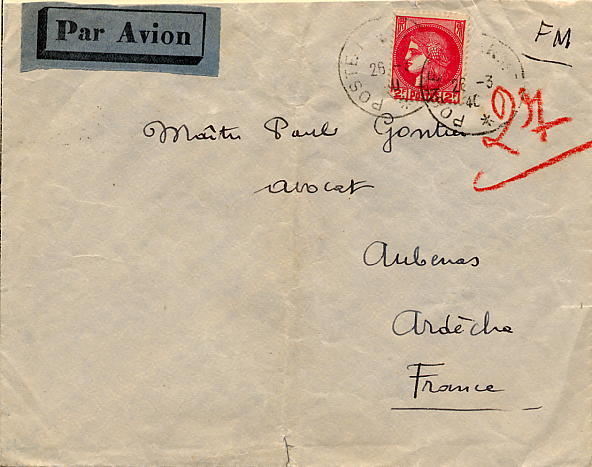 Par Avion
FM
POSTE
26 -3
40
PO
2F POSTES 2F
237
Maître Paul Gontier
avocat
Aubenas
Ardèche
France